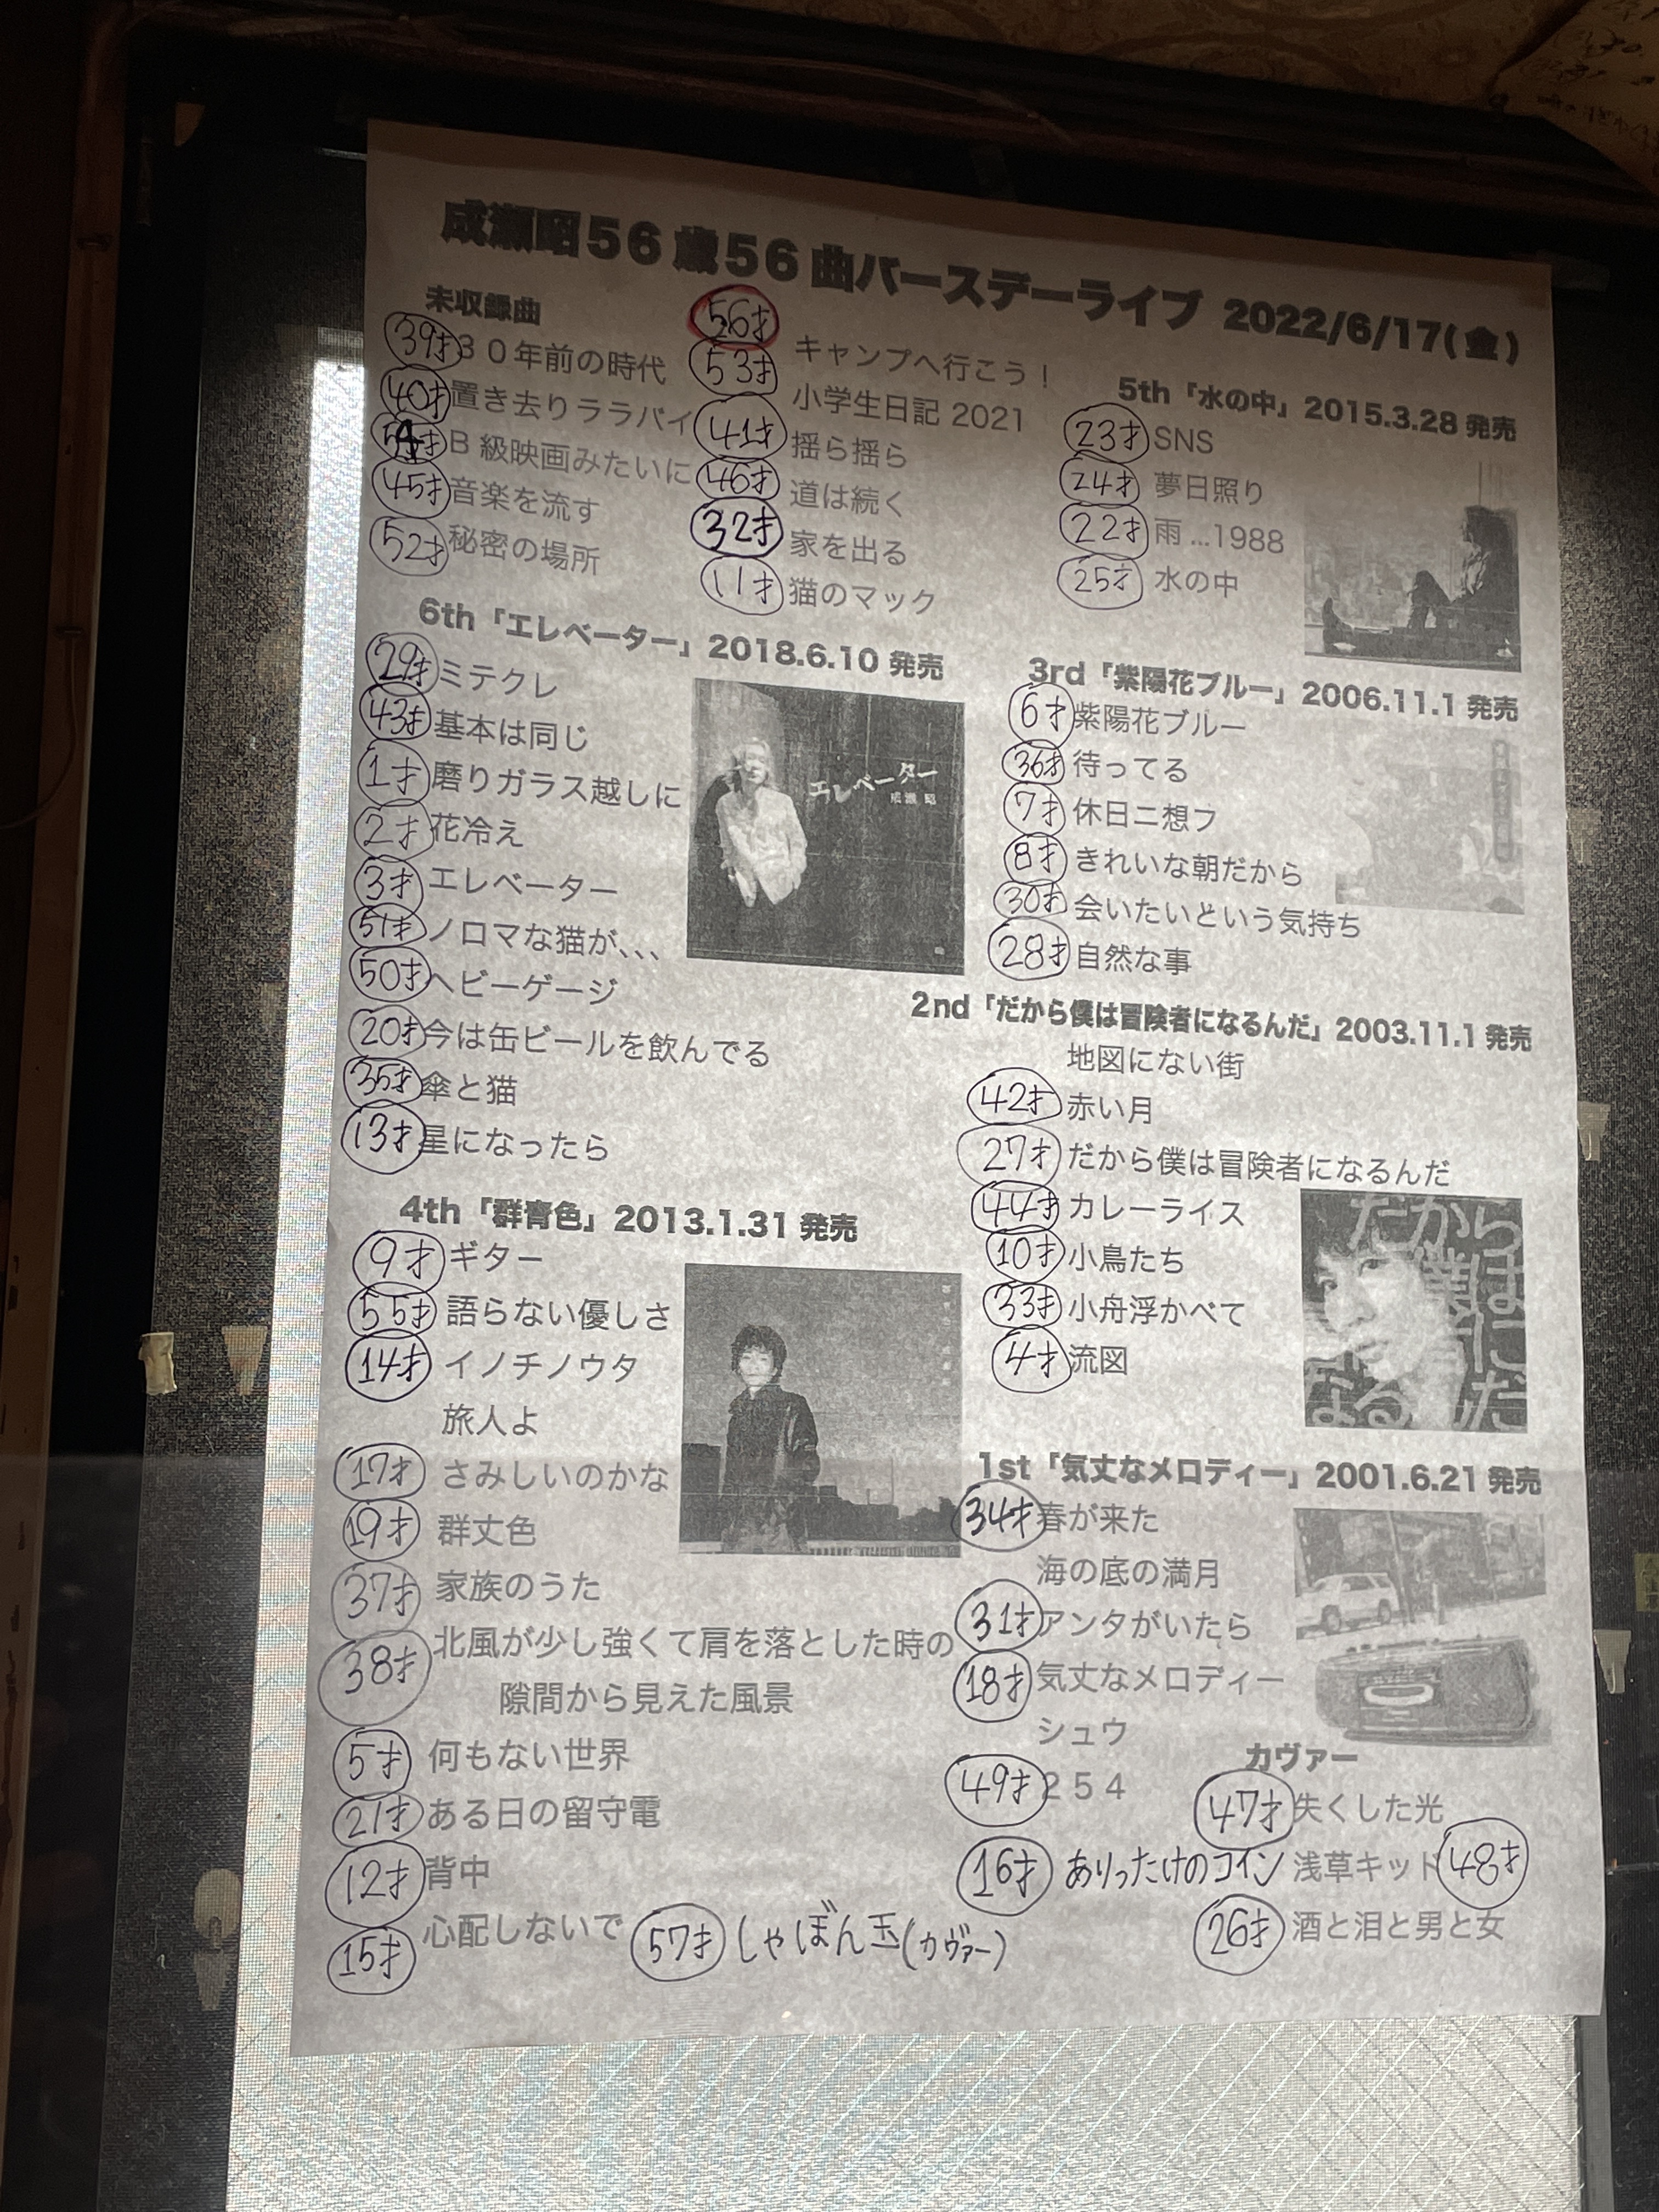 成瀬昭56歳56曲バースデーライブ 2022/6/17(金)
未収録曲
39才 30年前の時代
40才 置き去りララバイ
B級映画みたいに
45才 音楽を流す
52才 秘密の場所
56才 キャンプへ行こう!
53才 小学生日記 2021
41才 揺ら揺ら
46才 道は続く
32才 家を出る
11才 猫のマック
5th「水の中」2015.3.28 発売
23才 SNS
24才 夢日照り
22才 雨...1988
25才 水の中
6th「エレベーター」2018.6.10 発売
29才 ミテクレ
43才 基本は同じ
1才 磨りガラス越しに
2才 花冷え
3才 エレベーター
51才 ノロマな猫が、、、
50才 ヘビーゲージ
20才 今は缶ビールを飲んでる
35才 傘と猫
13才 星になったら
エレベーター
成瀬 昭
3rd「紫陽花ブルー」2006.11.1 発売
6才 紫陽花ブルー
36才 待ってる
7才 休日ニ想フ
8才 きれいな朝だから
30才 会いたいという気持ち
28才 自然な事
2nd「だから僕は冒険者になるんだ」2003.11.1 発売
地図にない街
42才 赤い月
27才 だから僕は冒険者になるんだ
44才 カレーライス
10才 小鳥たち
33才 小舟浮かべて
4才 流図
だから
僕は
なるんだ
4th「群青色」2013.1.31 発売
9才 ギター
55才 語らない優しさ
14才 イノチノウタ
旅人よ
17才 さみしいのかな
19才 群丈色
37才 家族のうた
38才 北風が少し強くて肩を落とした時の
隙間から見えた風景
5才 何もない世界
21才 ある日の留守電
12才 背中
15才 心配しないで
57才 しゃぼん玉(カヴァー)
1st「気丈なメロディー」2001.6.21 発売
34才 春が来た
海の底の満月
31才 アンタがいたら
18才 気丈なメロディー
シュウ
49才 254
16才 ありったけのコイン
カヴァー
47才 失くした光
浅草キッド 48才
26才 酒と泪と男と女